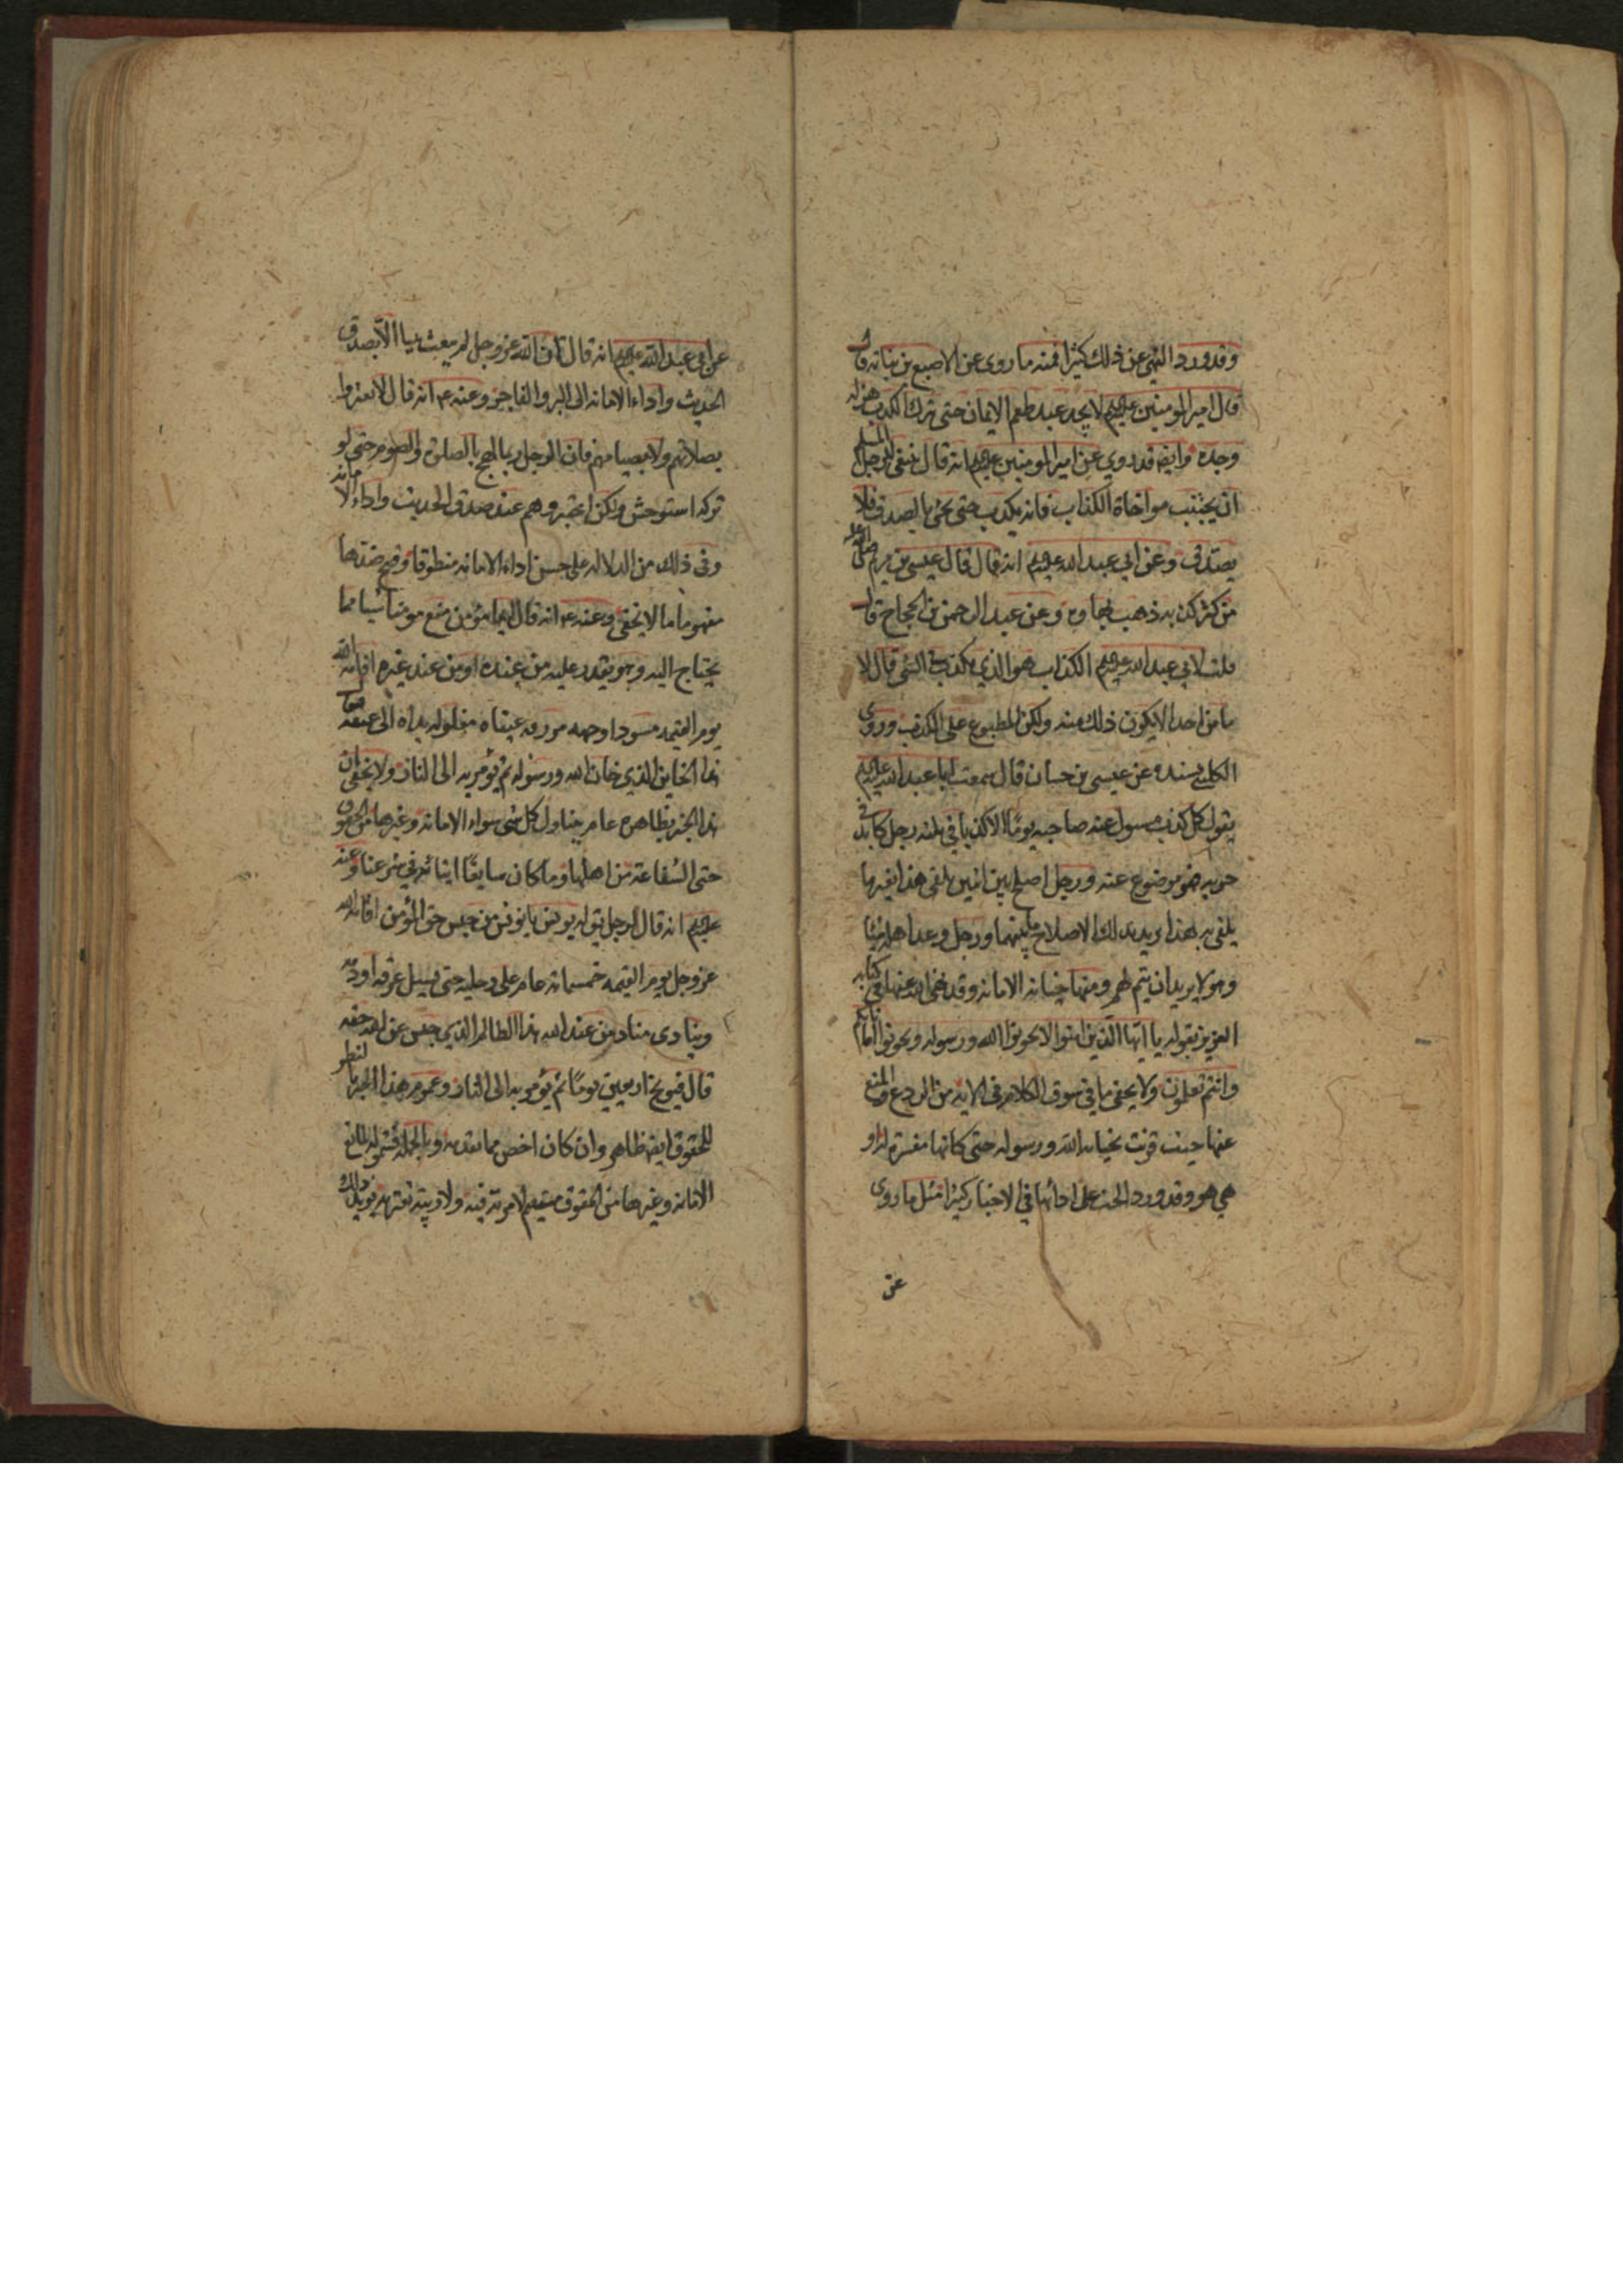 وقدورد النهى عن ذلك كثيرا فمنه ما روى عن الاصبغ بن نباته قال
قال امير المومنين عليهم لا يجد عبد طعم الايمان حتى يترك الكذب هزله
وجده وايضه قد روي عن امير المومنين عليهم انه قال ينبغى للرجل المسلم
ان يجتنب مواخاة الكذاب فانه يكذب حتى يجئ بالصدق فلا
يصدق وعن ابي عبد الله عليهم انه قال قال عيسى بن مريم صلى الله عليه
من كثر كذبه ذهب بهاوه وعن عبد الرحمن بن الحجاج قال
قلت لابي عبد الله عليهم الكذاب هو الذي يكذب في الشئ قال لا
ما من احد الا يكون ذلك منه ولكن المطبوع على الكذب وروى
الكليني بسنده عن عيسى بن حسان قال سمعت ابا عبد الله عليهم
يقول كل كذب مسول عنه صاحبه يوما الا كذبا في ثلثه رجل كايد في
حربه فهو موضوع عنه ورجل اصلح بين اثنين يلقى هذا بغير ما
يلقى به هذا يريد بذلك الاصلاح ما بينهما ورجل وعد اهله شيئا
وهو لا يريد ان يتم لهم ومنها خيانه الامانه وقد نهى الله عنها في كتابه
العزيز بقوله يا ايها الذين امنوا لا تخونوا الله ورسوله وتخونوا اماناتكم
وانتم تعلمون ولا يخفى ما في سوق الكلام في الايه من الردع والمنع
عنها حيث قرنت بخيانه الله ورسوله حتى كانها مفسرة له او
هي هو وقد ورد الحث على ادائها في الاخبار كثيرا مثل ما روى
عن
عن ابي عبد الله عليهم انه قال ان الله عز وجل لم يبعث نبيا الا بصدق
الحديث واداء الامانه الى البر والفاجر وعنه ع انه قال لا تغتروا
بصلاتهم ولا بصيامهم فان الرجل ربما لهج بالصلوة والصوم حتى لو
تركه استوحش ولكن اختبروهم عند صدق الحديث واداء الامانه
وفى ذلك من الدلاله على حسن اداء الامانه منطوقا وقبح ضدها
مفهوما ما لا يخفى وعنه ع انه قال ايما مؤمن منع مومنا شيا مما
يحتاج اليه وهو يقدر عليه من عنده او من عند غيره اقامه الله
يوم القيمه مسودا وجهه مزرقه عيناه مغلوله يداه الى عنقه فيقال
هذا الخاين الذي خان الله ورسوله ثم يؤمر به الى النار ولا يخفى ان
هذا الخبر بظاهره عام يتناول كل شى سواء الامانه وغيرها من الحقوق
حتى الشفاعة من اهلها وما كان سايغا اتيانه في شرعنا وعنه
عليهم انه قال لرجل يق له يونس يا يونس من حبس حق المؤمن اقامه الله
عز وجل يوم القيمه خمسمائه عام على رجليه حتى يسيل عرقه او دمه
وينادى مناد من عند الله هذا الظالم الذي حبس عن الله حقه
قال فيوبخ اربعين يوما ثم يؤمر به الى النار وعموم هذا الخبر بالنظر
للحقوق ايضه ظاهر وان كان اخص مما تقدمه وبالجمله فشموله لمانع
الامانه وغيرها من الحقوق مستقيم لا مرية فيه ولا ريبه تعتريه ويؤيد ذلك